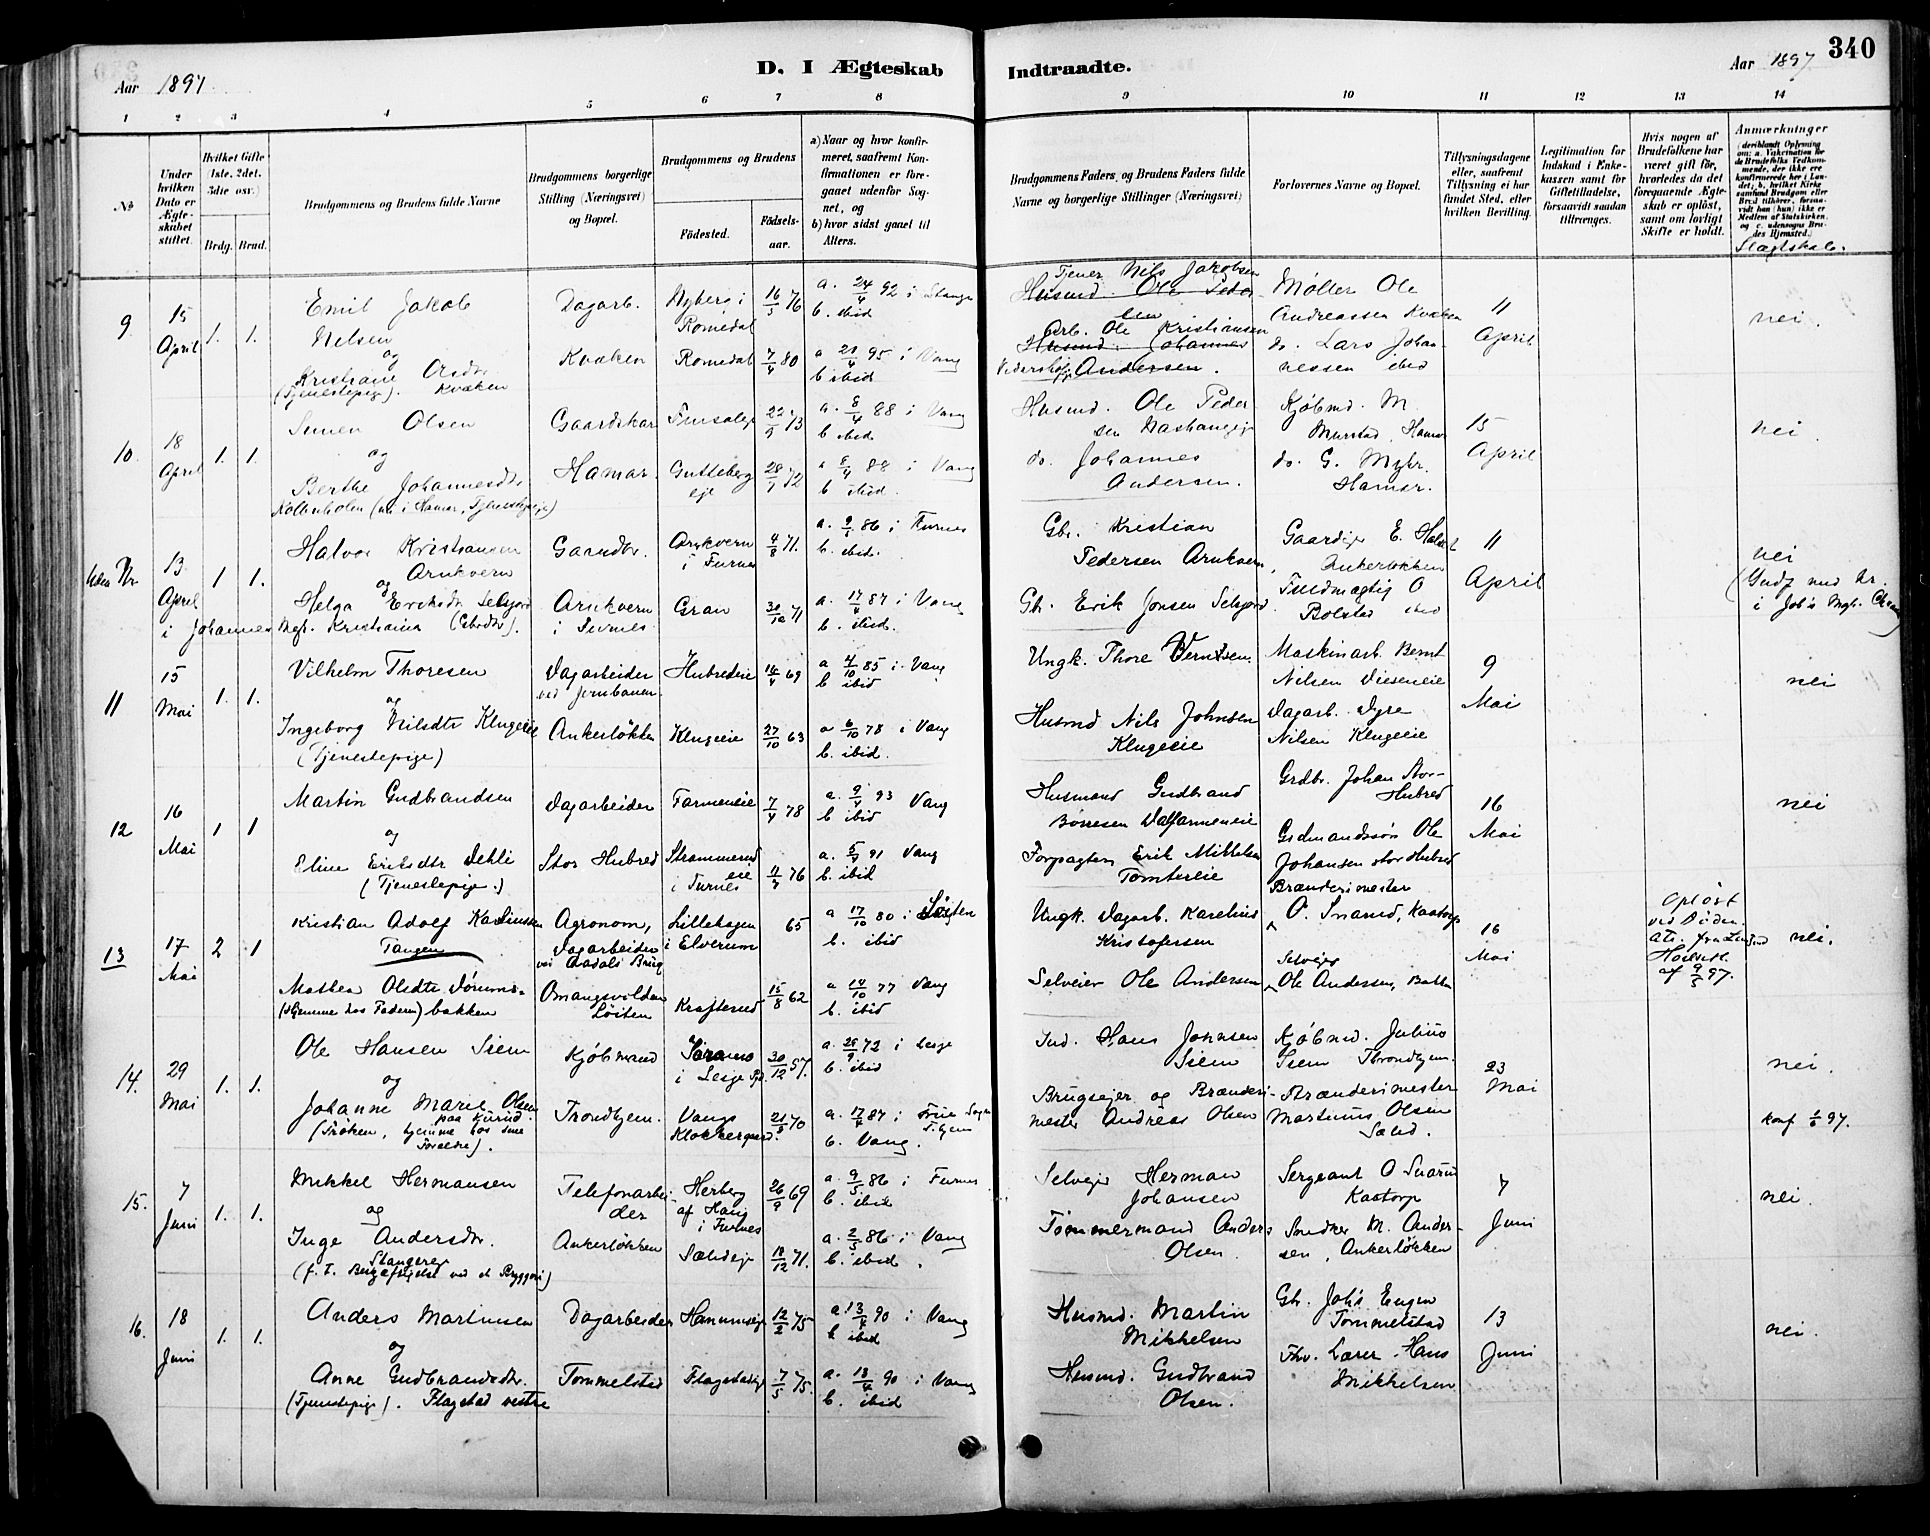 Aar 1897
D. I Ægteskab
Indtraadte.
Aar 1897
340
1 2 3 4 5 6 7 8 9 10 11 12 13 14
№
Under hvilken Dato er Ægteskabet stiftet.
Hvilket Gifte (1ste, 2det, 3die osv.)
Brdg. Brud.
Brudgommens og Brudens fulde Navne
Brudgommens borgerlige Stilling (Næringsvei) og Bopæl.
Brudgommens og Brudens
Fødested.
Fødselsaar.
a) Naar og hvor konfirmeret, saafremt Konfirmationen er foregaaet udenfor Sognet, og
b) hvor sidst gaaet til Alters.
Brudgommens Faders og Brudens Faders fulde Navne og borgerlige Stillinger (Næringsvei)
Forlovernes Navne og Bopæl.
Tillysningsdagene eller, saafremt Tillysning ei har fundet Sted, efter hvilken Bevilling.
Legitimation for Indskud i Enkekassen samt for Giftetilladelse, forsaavidt saadan tiltrænges.
Hvis nogen af Brudefolkene har været gift før, hvorledes da det foregaaende Ægteskab er opløst, samt om lovligt Skifte er holdt.
Anmærkninger
Slægtskab.
9 15 April 1. 1.
Emil Jakob Nilsen
og
Kristiane Olsdtr.
(Tjenestepige). Kvæken
Dagarb.
Kvæken
Nyberg i Romedal 16/5 76
Romedal 7/4 80
a. 24/4 92 i Stange
b. ibid
a 21/4 95 i Vang
b ibid
Tjener Nils Jakobsen
Husmd. Ole Pedersen
Arb. Ole Kristiansen
Husmd. Johannes Andersen.
Møller Ole Andreassen Kvæken
do. Lars Johannessen ibid
11 April
nei.
10. 18 April 1. 1.
Simen Olsen
og
Berthe Johannesdtr.
(nu i Hamar, Tjenestepige)
Gaardskar
Hamar.
22/9 73
28/7 72
a. 8/4 88 i Vang
b ibid.
a 8/4 88 i Vang
b. ibid.
Husmd. Ole Pedersen
do. Johannes Andersen.
Kjøbmd. M. Murstad, Hamar
do. G. Myhr. Hamar.
15 April
nei.
Uden Nr. 13 April 1 1.
i Johannes Mgh. Kristiania
Halvor Kristiansen Arnkvern
og
Helga Eriksdtr. Selsjord
Gaardbr.
Arnkvern i Furnes
Arnkvern i Furnes 4/8 71.
Gran 30/10 71
a. 9/5 86 i Furnes
b. ibid.
a. 17/4 87 i Vang
b. ibid.
Gbr. Kristian Pedersen Arnkvern
Gb. Erik Jonsen Selsjord
Gaardejer E. Ankerløkken
Fuldmægtig O Bolstad ibid
11 April
nei
11 15 Mai 1. 1.
Vilhelm Thoresen
og
Ingeborg Nilsdtr Klugeeie
(Tjenestepige)
Dagarbeider ved Jernbanen
Ankerløkken
Hubredeie 14/4 69
Klugeeie 27/10 63
a 4/10 85 i Vang
b ibid
a 6/10 78 i Vang
b. ibid.
Ungk. Thore Berntsen
Husmd Nils Johnsen Klugeeie
Maskinarb. Bernt Nilsen
Dagarb. Dyre Nilsen Klugeeie
9 Mai
nei
12 16 Mai 1 1
Martin Gudbrandsen
og
Eline Eriksdtr Dehli
(Tjenestepige.)
Dagarbeider
Stor Hubred
Farmeneie 7/4 78
Strammerudeie i Furnes 11/7 76
a. 9/4 93 Vang
b ibid
a. 5/4 91 Vang
b. ibid
Husmand Gudbrand
Forpagter Erik Mikkelsen Tomtereie
Grdbr. Johan Stor-Hubred
Grdmandssøn Ole Johansen Stor Hubred
16 Mai
nei
13 17 Mai 2 1
Kristian Adolf Karelinussen Tangen
Mathea Olsdtr Dørumsbakken
(Hjemme hos Faderen)
Agronom, Dagarbeider ved Aadals Brug
Omangsvolden Løiten
Lillehagen i Elverum 65
Krafterud 15/8 62
a 17/10 80 i Løiten
b. ibid
a 14/10 77 Vang
b. ibid
Ungk. Dagarb. Karelius Kristofersen
Selveier Ole Andersen
Brænderimester O. Snarud, Kaatorp
Selveier Ole Andersen, Bakken
16 Mai
Opløst
nei.
14. 29 Mai 1. 1.
Ole Hansen Siem
og
Johanne Marie Olsen
(Frøken, hjemme hos sine Forældre).
Kjøbmand
Trondhjem.
i Lesje 30/12 57.
Vangs Klokkergaard. 21/8 70
a. 29/9 72 i Lesje
b. ibid
a. 17/4 87 i Frue Sogn
b. Vang.
Ind. Hans Johnsen Siem
Brugsejer og Brænderimester Andreas Olsen
Kjøbmd. Julius Siem Throndhjem.
Brænderimester Martinus Olsen Sælid.
23 Mai
nei.
konf 1/6 97.
15. 7 Juni 1. 1.
Mikkel Hermansen
og
Inge Andersdtr. Stangereje
Telefonarbeider
Ankerløkken
Herberg af Haug i Furnes 26/9 69
Sælideje 10/12 71.
a. 9/5 86 i Furnes
b. ibid.
a. 2/5 86 i Vang
b. ibid.
Selvejer Herman Johansen
Tømmermand Anders Olsen.
Sergeant O Snarud Kaatorp
Snedker M. Andersen, Ankerløkken
7 Juni
nei.
16. 18 Juni 1. 1.
Anders Martinsen
og
Anne Gudbrandsdtr.
(Tjenestepige). Flagstad vestre
Dagarbeider
Tommelstad
12/2 75
Flagstadeje 7/5 75.
a. 13/4 90 i Vang
b ibid
a. 13/4 90 i Vang
b. ibid
Husmd. Martin Mikkelsen
Husmd. Gudbrand Olsen.
Gb. Johs Engen Tommelstad
Fhv. Lærer Hans Mikkelsen
13 Juni
nei.